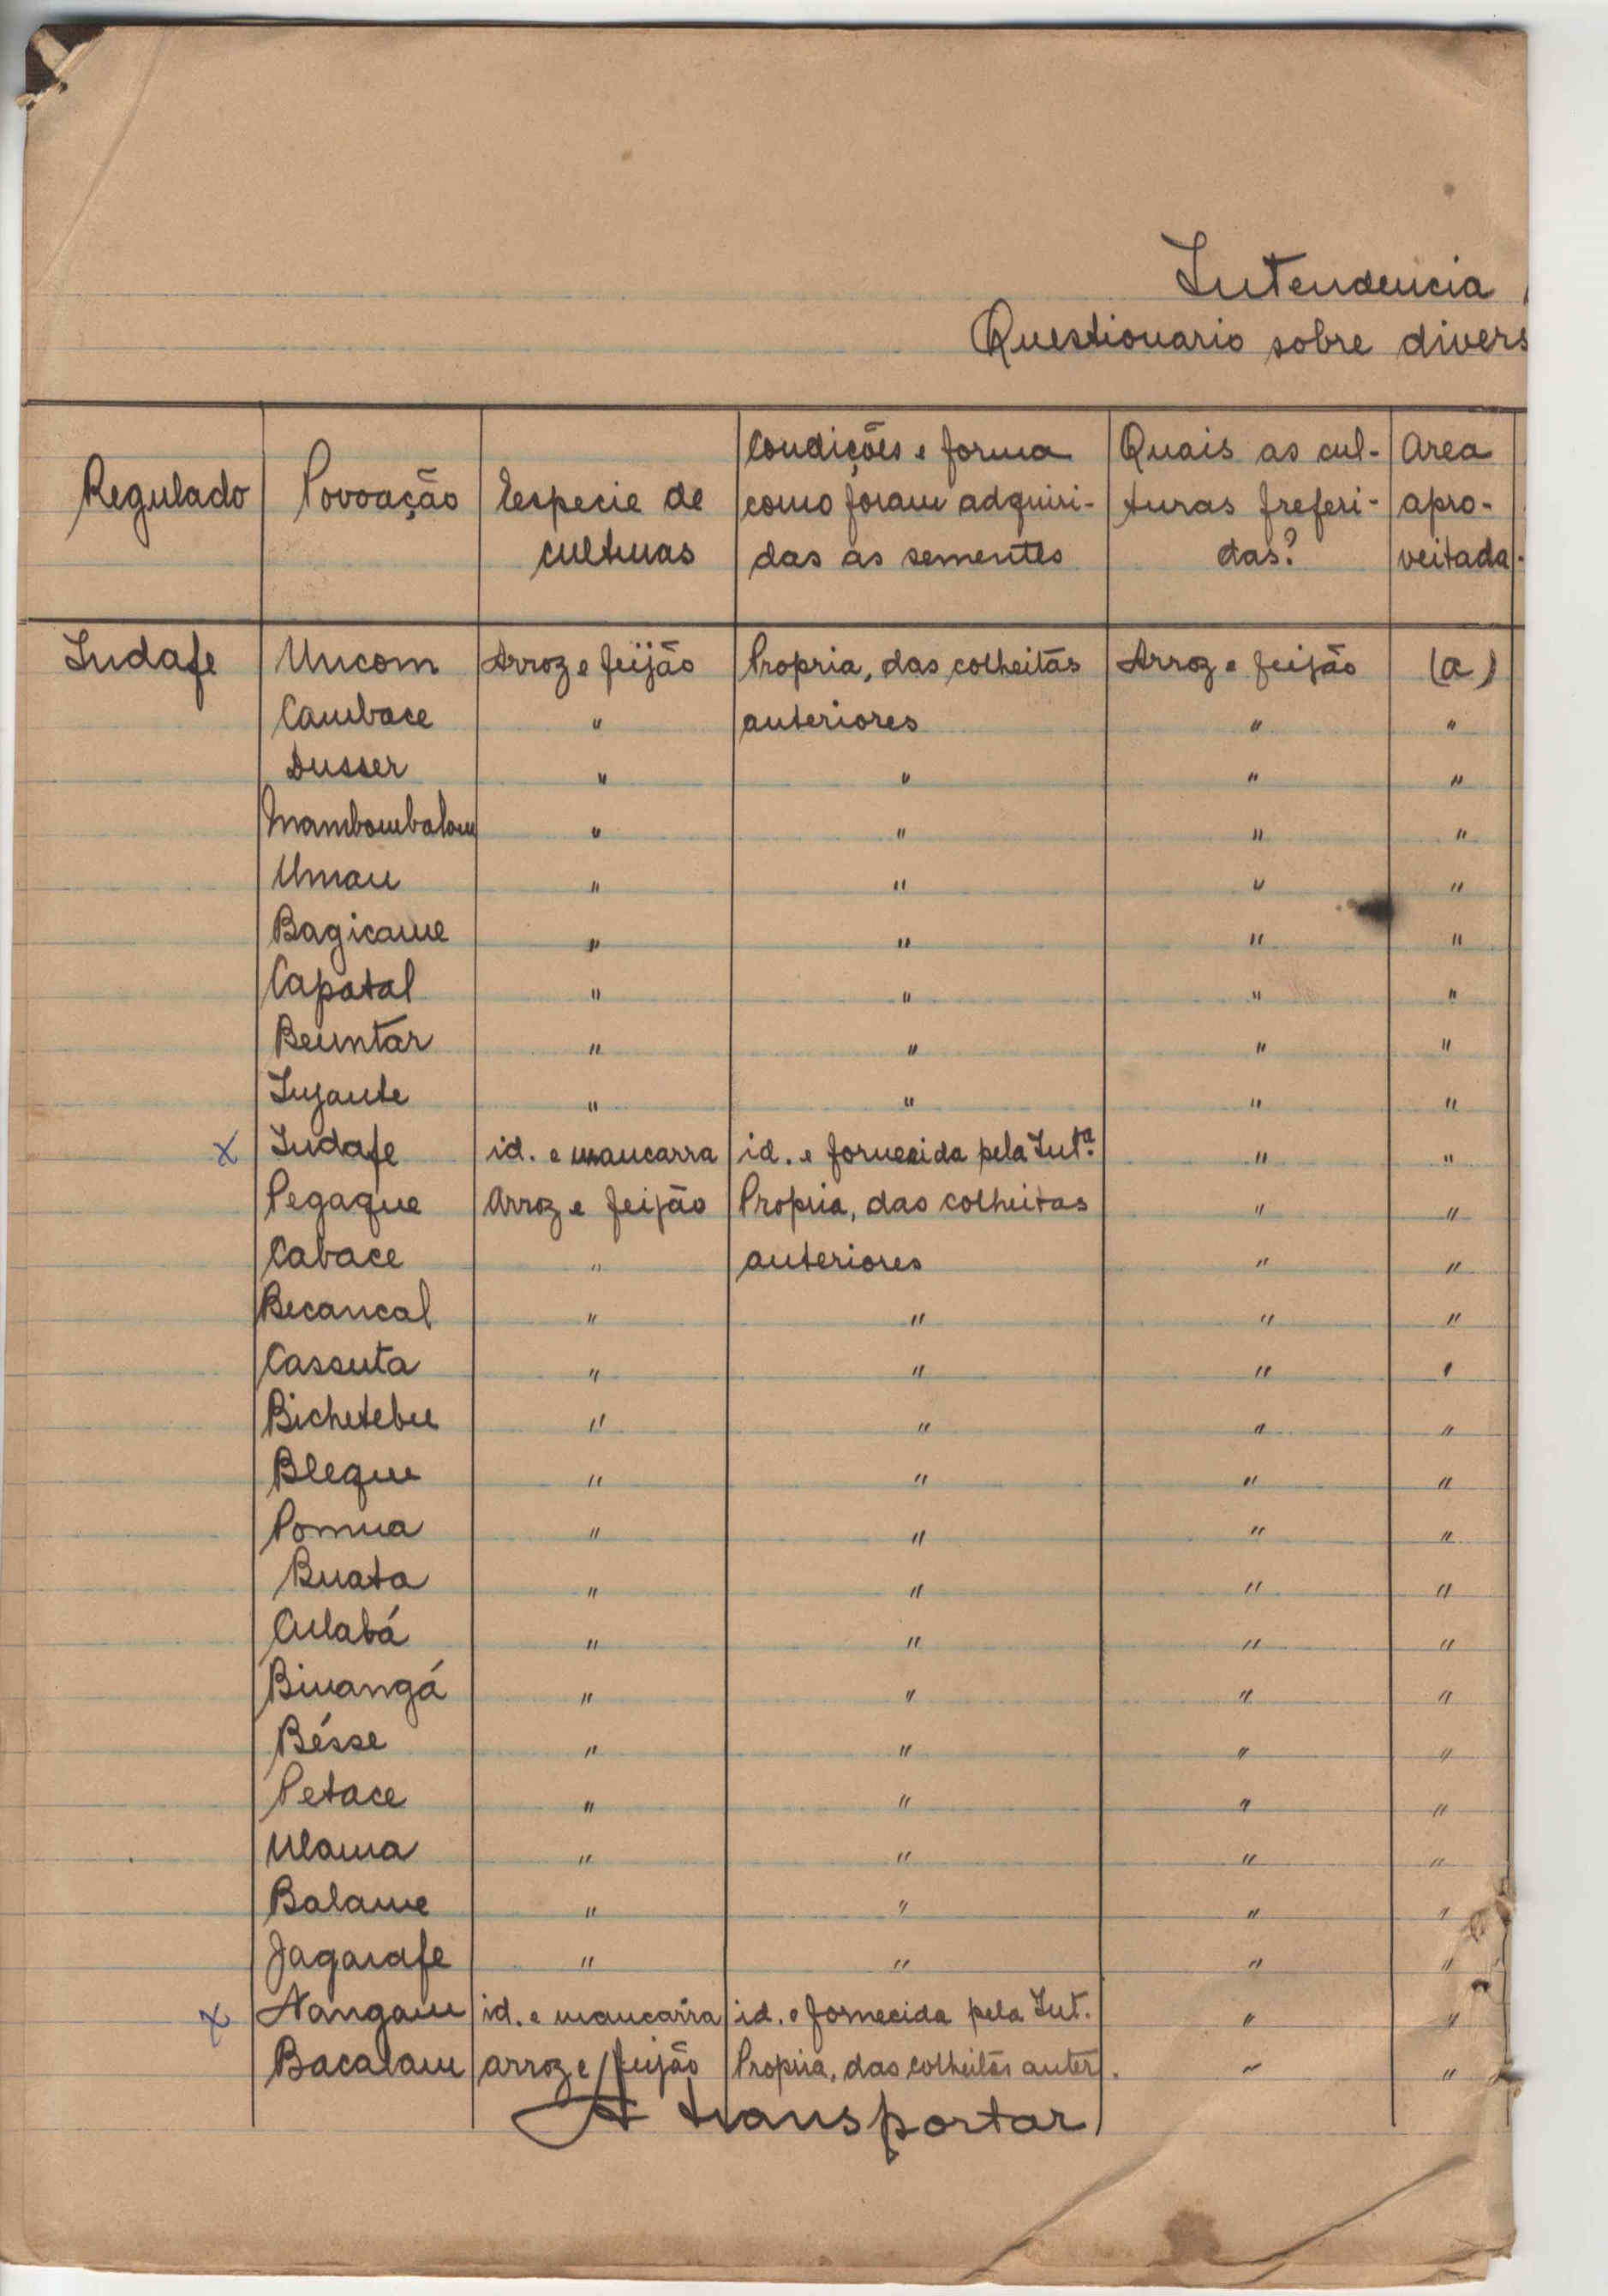 Intendencia
Questionario sobre divers
Regulado Povoação Especie de culturas Condições e forma como foram adquiridas as sementes Quais as culturas preferidas? Area aproveitada
Indafe Uncom Arroz e feijão Propria, das colheitas Arroz e feijão (a)
Cambace " anteriores " "
Dusser " " " "
Mambombalom " " " "
Uman " " " "
Bagicame " " " "
Capatal " " " "
Beuntar " " " "
Injante " " " "
x Indafe id. e mancarra id. e fornecida pela Intª. " "
Pegaque Arroz e feijão Propria, das colheitas " "
Cabace " anteriores " "
Becancal " " " "
Cassuta " " " "
Bichetebu " " " "
Bleque " " " "
Pomua " " " "
Buata " " " "
Culabá " " " "
Binangá " " " "
Bésse " " " "
Petace " " " "
Ulama " " " "
Balame " " " "
Jagarafe " " " "
x Nangam id. e mancarra id. e fornecida pela Int. " "
Bacalam arroz e feijão Propria, das colheitas anter. " "
A transportar